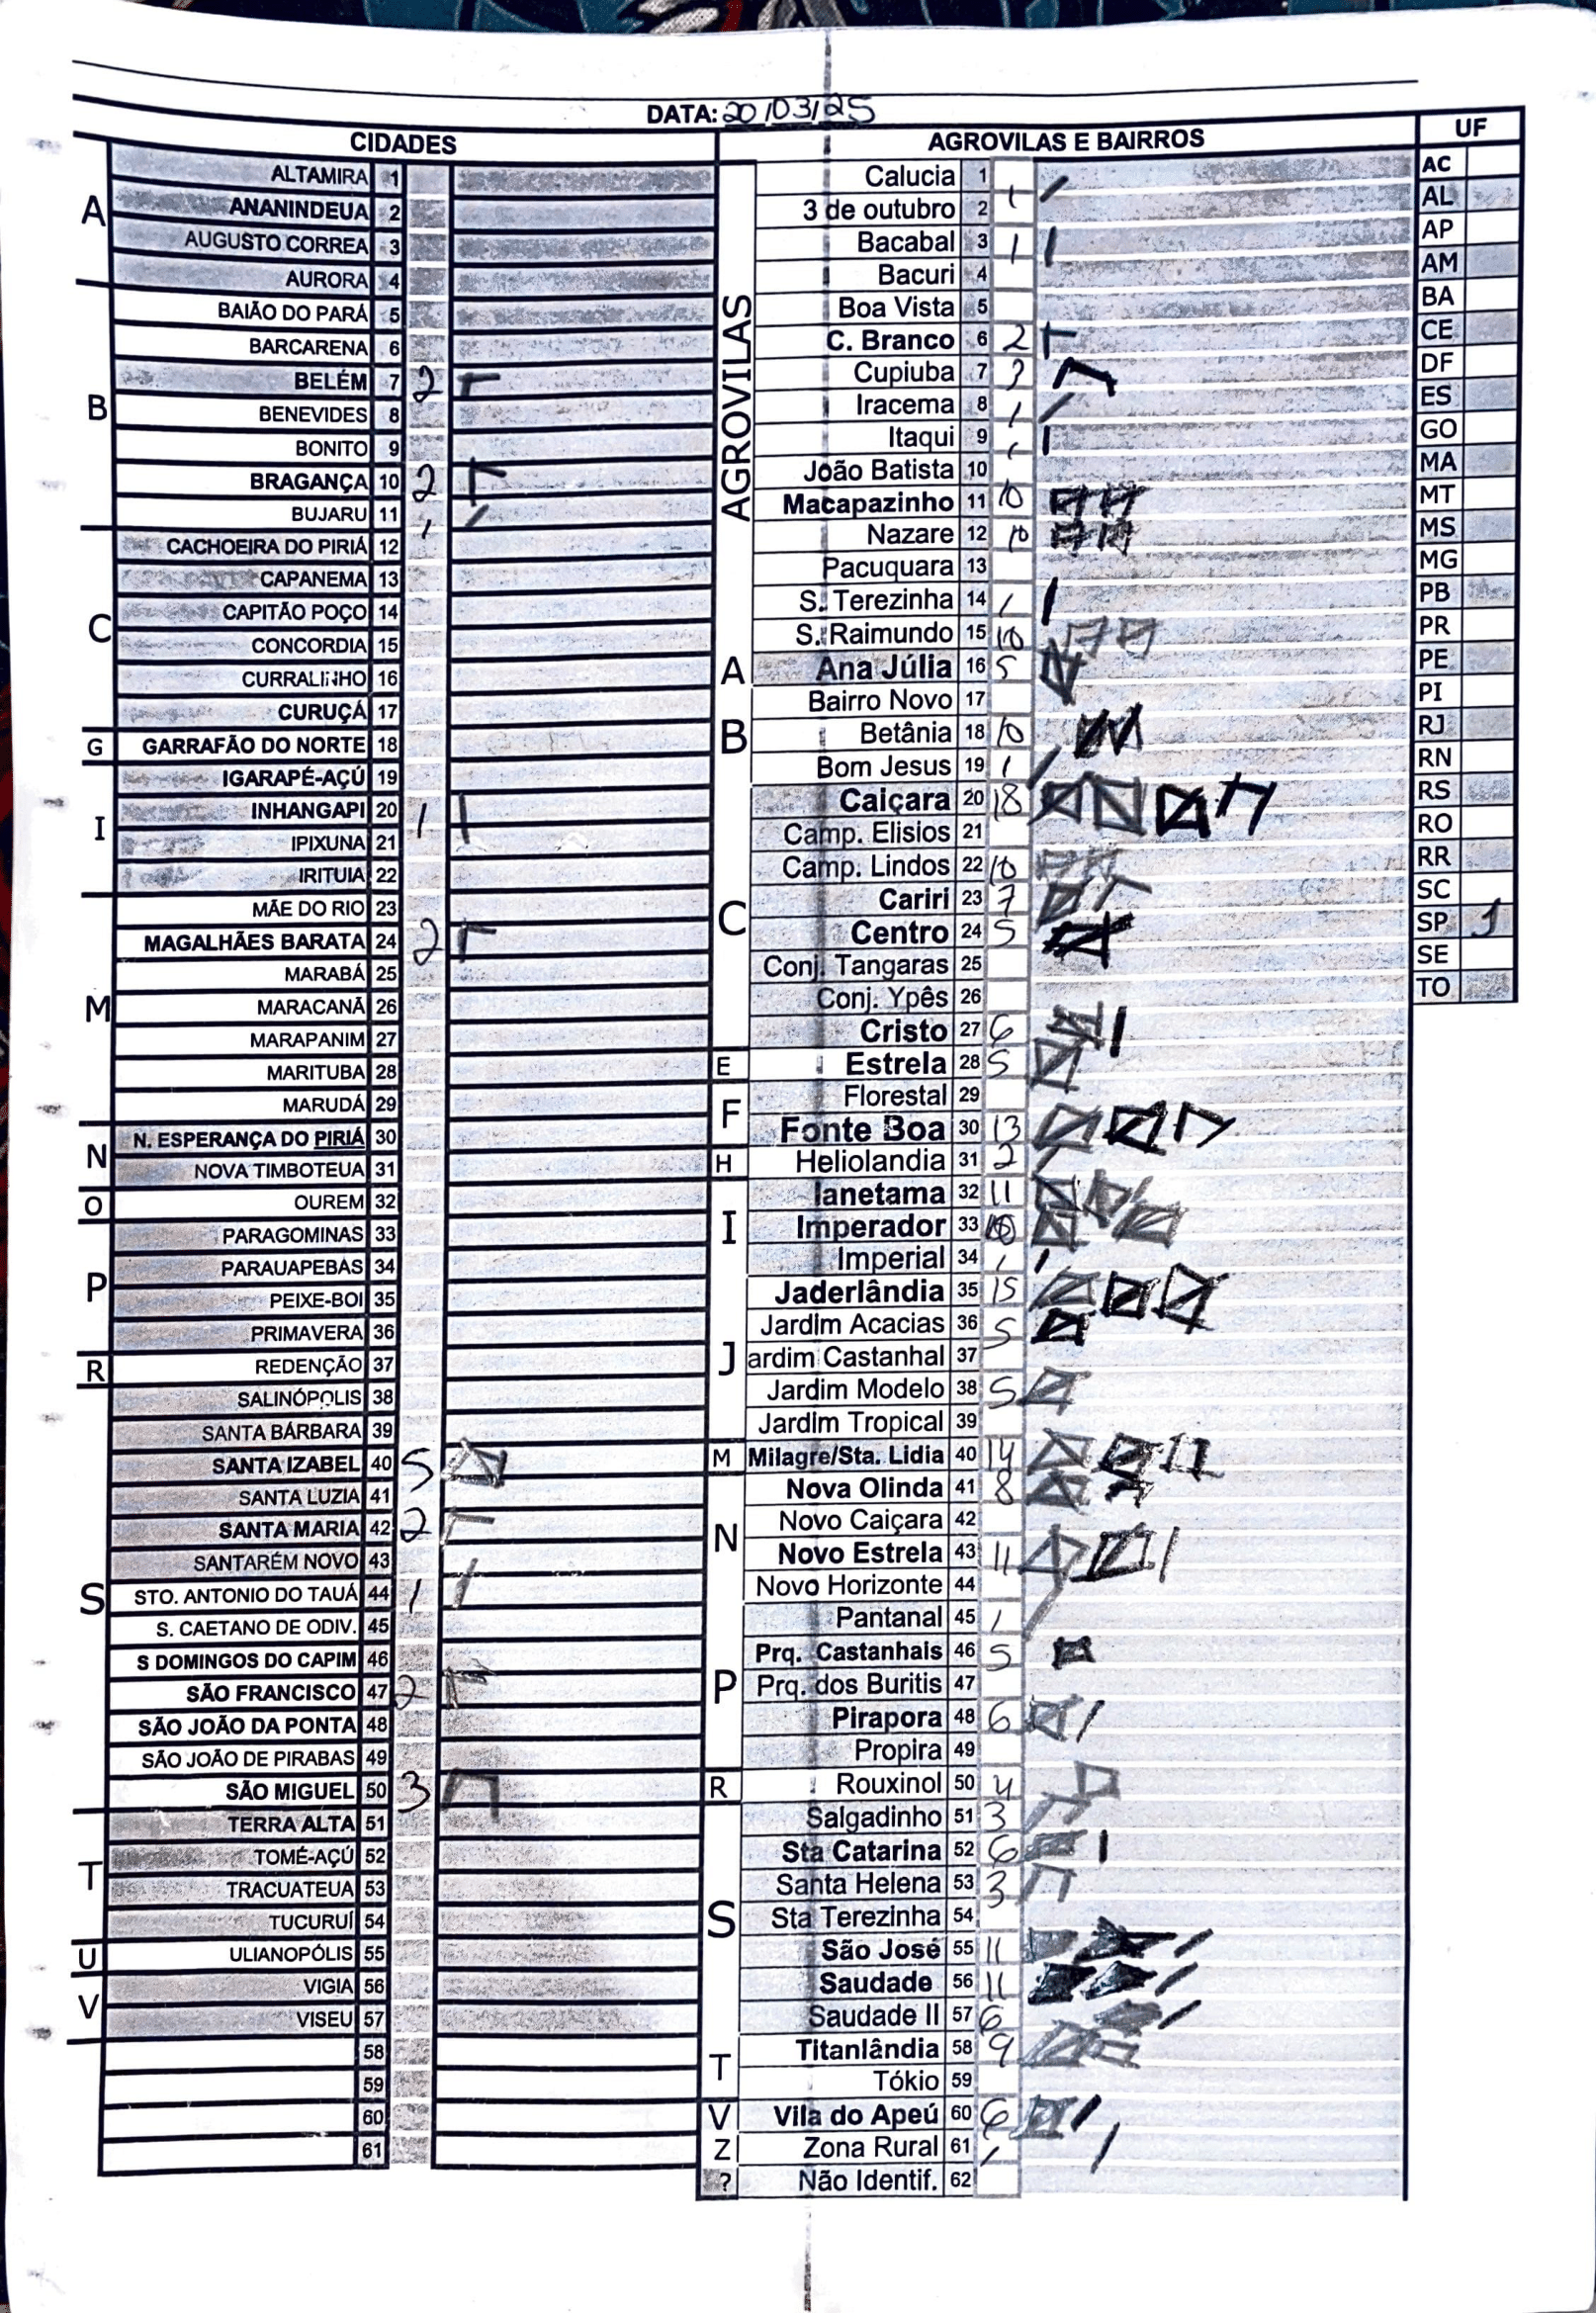 DATA: 20/03/25
CIDADES
A
ALTAMIRA 1
ANANINDEUA 2
AUGUSTO CORREA 3
AURORA 4
B
BAIÃO DO PARÁ 5
BARCARENA 6
BELÉM 7 2
BENEVIDES 8
BONITO 9
BRAGANÇA 10 2
BUJARU 11 1
C
CACHOEIRA DO PIRIÁ 12
CAPANEMA 13
CAPITÃO POÇO 14
CONCORDIA 15
CURRALINHO 16
CURUÇÁ 17
G
GARRAFÃO DO NORTE 18
I
IGARAPÉ-AÇÚ 19
INHANGAPI 20 1
IPIXUNA 21
IRITUIA 22
M
MÃE DO RIO 23
MAGALHÃES BARATA 24 2
MARABÁ 25
MARACANÃ 26
MARAPANIM 27
MARITUBA 28
MARUDÁ 29
N
N. ESPERANÇA DO PIRIÁ 30
NOVA TIMBOTEUA 31
O
OUREM 32
P
PARAGOMINAS 33
PARAUAPEBAS 34
PEIXE-BOI 35
PRIMAVERA 36
R
REDENÇÃO 37
S
SALINÓPOLIS 38
SANTA BÁRBARA 39
SANTA IZABEL 40 5
SANTA LUZIA 41
SANTA MARIA 42 2
SANTARÉM NOVO 43
STO. ANTONIO DO TAUÁ 44 1
S. CAETANO DE ODIV. 45
S DOMINGOS DO CAPIM 46
SÃO FRANCISCO 47 2
SÃO JOÃO DA PONTA 48
SÃO JOÃO DE PIRABAS 49
SÃO MIGUEL 50 3
T
TERRA ALTA 51
TOMÉ-AÇÚ 52
TRACUATEUA 53
TUCURUÍ 54
U
ULIANOPÓLIS 55
V
VIGIA 56
VISEU 57
58
59
60
61
AGROVILAS E BAIRROS
AGROVILAS
Calucia 1
3 de outubro 2 1
Bacabal 3 1
Bacuri 4
Boa Vista 5
C. Branco 6 2
Cupiuba 7 3
Iracema 8 1
Itaqui 9 1
João Batista 10
Macapazinho 11 10
Nazare 12 10
Pacuquara 13
S. Terezinha 14 1
S. Raimundo 15 10
A
Ana Júlia 16 5
B
Bairro Novo 17
Betânia 18 10
Bom Jesus 19 1
C
Caiçara 20 18
Camp. Elisios 21
Camp. Lindos 22 10
Cariri 23 7
Centro 24 5
Conj. Tangaras 25
Conj. Ypês 26
Cristo 27 6
E
Estrela 28 5
F
Florestal 29
Fonte Boa 30 13
H
Heliolandia 31 2
I
Ianetama 32 11
Imperador 33 10
Imperial 34 1
J
Jaderlândia 35 15
Jardim Acacias 36 5
ardim Castanhal 37
Jardim Modelo 38 5
Jardim Tropical 39
M
Milagre/Sta. Lidia 40 14
N
Nova Olinda 41 8
Novo Caiçara 42
Novo Estrela 43 11
Novo Horizonte 44
P
Pantanal 45 1
Prq. Castanhais 46 5
Prq. dos Buritis 47
Pirapora 48 6
Propira 49
R
Rouxinol 50 4
S
Salgadinho 51 3
Sta Catarina 52 6
Santa Helena 53 3
Sta Terezinha 54
São José 55 11
Saudade 56 11
Saudade II 57 6
T
Titanlândia 58 9
Tókio 59
V
Vila do Apeú 60 6
Z
Zona Rural 61 1
?
Não Identif. 62
UF
AC
AL
AP
AM
BA
CE
DF
ES
GO
MA
MT
MS
MG
PB
PR
PE
PI
RJ
RN
RS
RO
RR
SC
SP 1
SE
TO